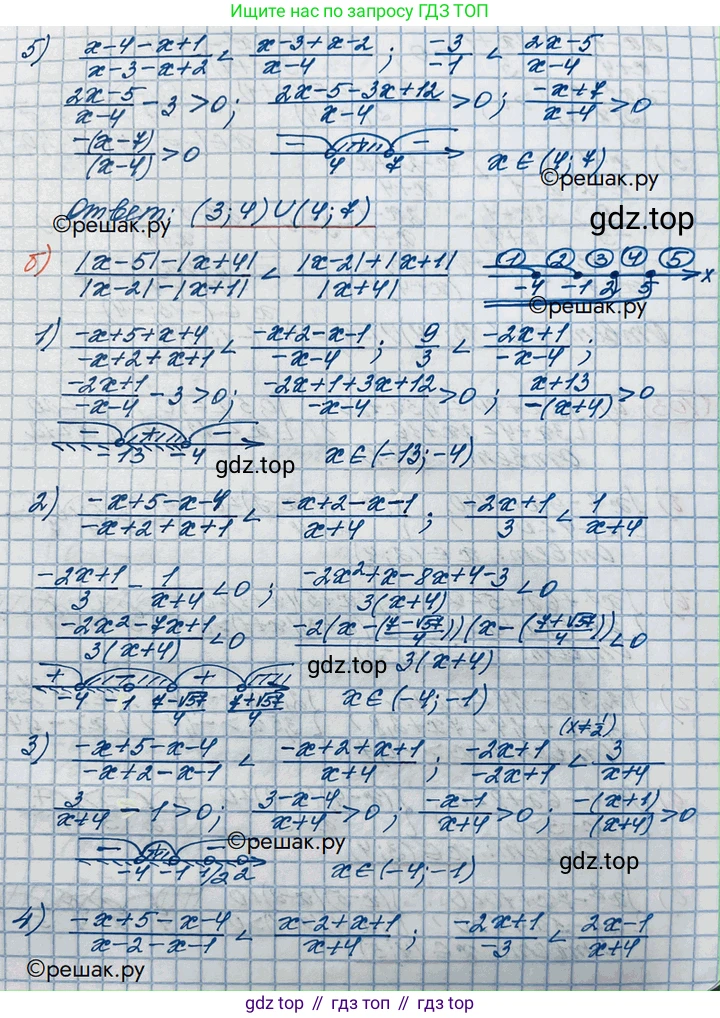 Ищите нас по запросу ГДЗ ТОП
5) (x-4-x+1)/(x-3-x+2) < (x-3+x-2)/(x-4) ; (-3)/(-1) < (2x-5)/(x-4)
(2x-5)/(x-4) - 3 > 0 ; (2x-5-3x+12)/(x-4) > 0 ; (-x+7)/(x-4) > 0
(-(x-7))/((x-4)) > 0 - + - 4 7 x ∈ (4; 7)
©решак.ру
Ответ: (3; 4) ∪ (4; 7)
©решак.ру
gdz.top
б) (|x-5|-|x+4|)/(|x-2|-|x+1|) < (|x-2|+|x+1|)/(|x+4|) 1 2 3 4 5 -4 -1 2 5 x
©решак.ру
1) (-x+5+x+4)/(-x+2+x+1) < (-x+2-x-1)/(-x-4) ; 9/3 < (-2x+1)/(-x-4) ;
(-2x+1)/(-x-4) - 3 > 0 ; (-2x+1+3x+12)/(-x-4) > 0 ; (x+13)/(-(x+4)) > 0
- + - -13 -4 x ∈ (-13; -4)
gdz.top
2) (-x+5-x-4)/(-x+2+x+1) < (-x+2-x-1)/(x+4) ; (-2x+1)/3 < 1/(x+4)
(-2x+1)/3 - 1/(x+4) < 0 ; (-2x²+x-8x+4-3)/(3(x+4)) < 0
(-2x²-7x+1)/(3(x+4)) < 0 (-2(x-((7-√57)/4))(x-((7+√57)/4)))/(3(x+4)) < 0
gdz.top
+ + -4 -1 (7-√57)/4 (7+√57)/4 x ∈ (-4; -1)
3) (-x+5-x-4)/(-x+2-x-1) < (-x+2+x+1)/(x+4) ; (-2x+1)/(-2x+1) < 3/(x+4) (x≠1/2)
3/(x+4) - 1 > 0 ; (3-x-4)/(x+4) > 0 ; (-x-1)/(x+4) > 0 ; (-(x+1))/((x+4)) > 0
©решак.ру
- + - -4 -1 1/2 2 x ∈ (-4; -1)
gdz.top
4) (-x+5-x-4)/(x-2-x-1) < (x-2+x+1)/(x+4) ; (-2x+1)/(-3) < (2x-1)/(x+4)
©решак.ру
gdz.top // гдз топ // gdz top